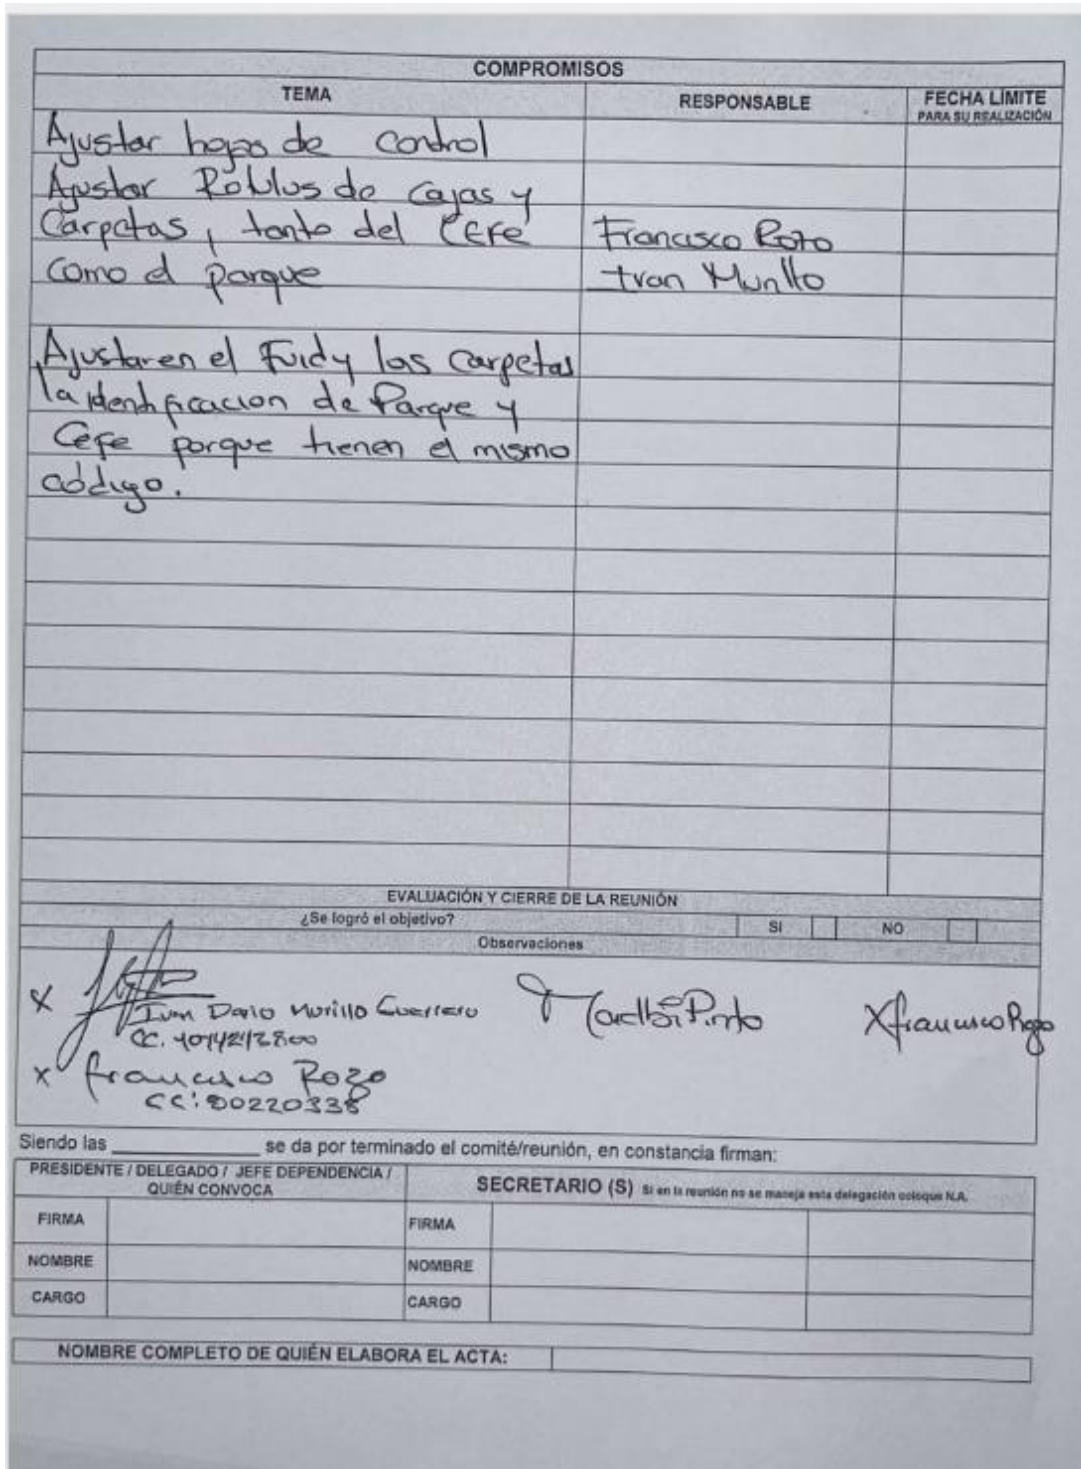 COMPROMISOS
TEMA RESPONSABLE FECHA LÍMITE
PARA SU REALIZACIÓN
Ajustar hojas de control
Ajustar Rotulos de cajas y
Carpetas, tanto del Cefe Francisco Rozo
como el parque Ivan Murillo
Ajustar en el Fuid y las carpetas
la identificacion de Parque y
Cefe porque tienen el mismo
código.
EVALUACIÓN Y CIERRE DE LA REUNIÓN
¿Se logró el objetivo? SI NO
Observaciones
X Ivan Dario Murillo Guerrero Pinto X Francisco Rozo
CC.
X Francisco Rozo
CC: 80220338
Siendo las ____________ se da por terminado el comité/reunión, en constancia firman:
PRESIDENTE / DELEGADO / JEFE DEPENDENCIA / SECRETARIO (S) Si en la reunión no se maneja esta delegación coloque N.A.
QUIÉN CONVOCA
FIRMA FIRMA
NOMBRE NOMBRE
CARGO CARGO
NOMBRE COMPLETO DE QUIÉN ELABORA EL ACTA: